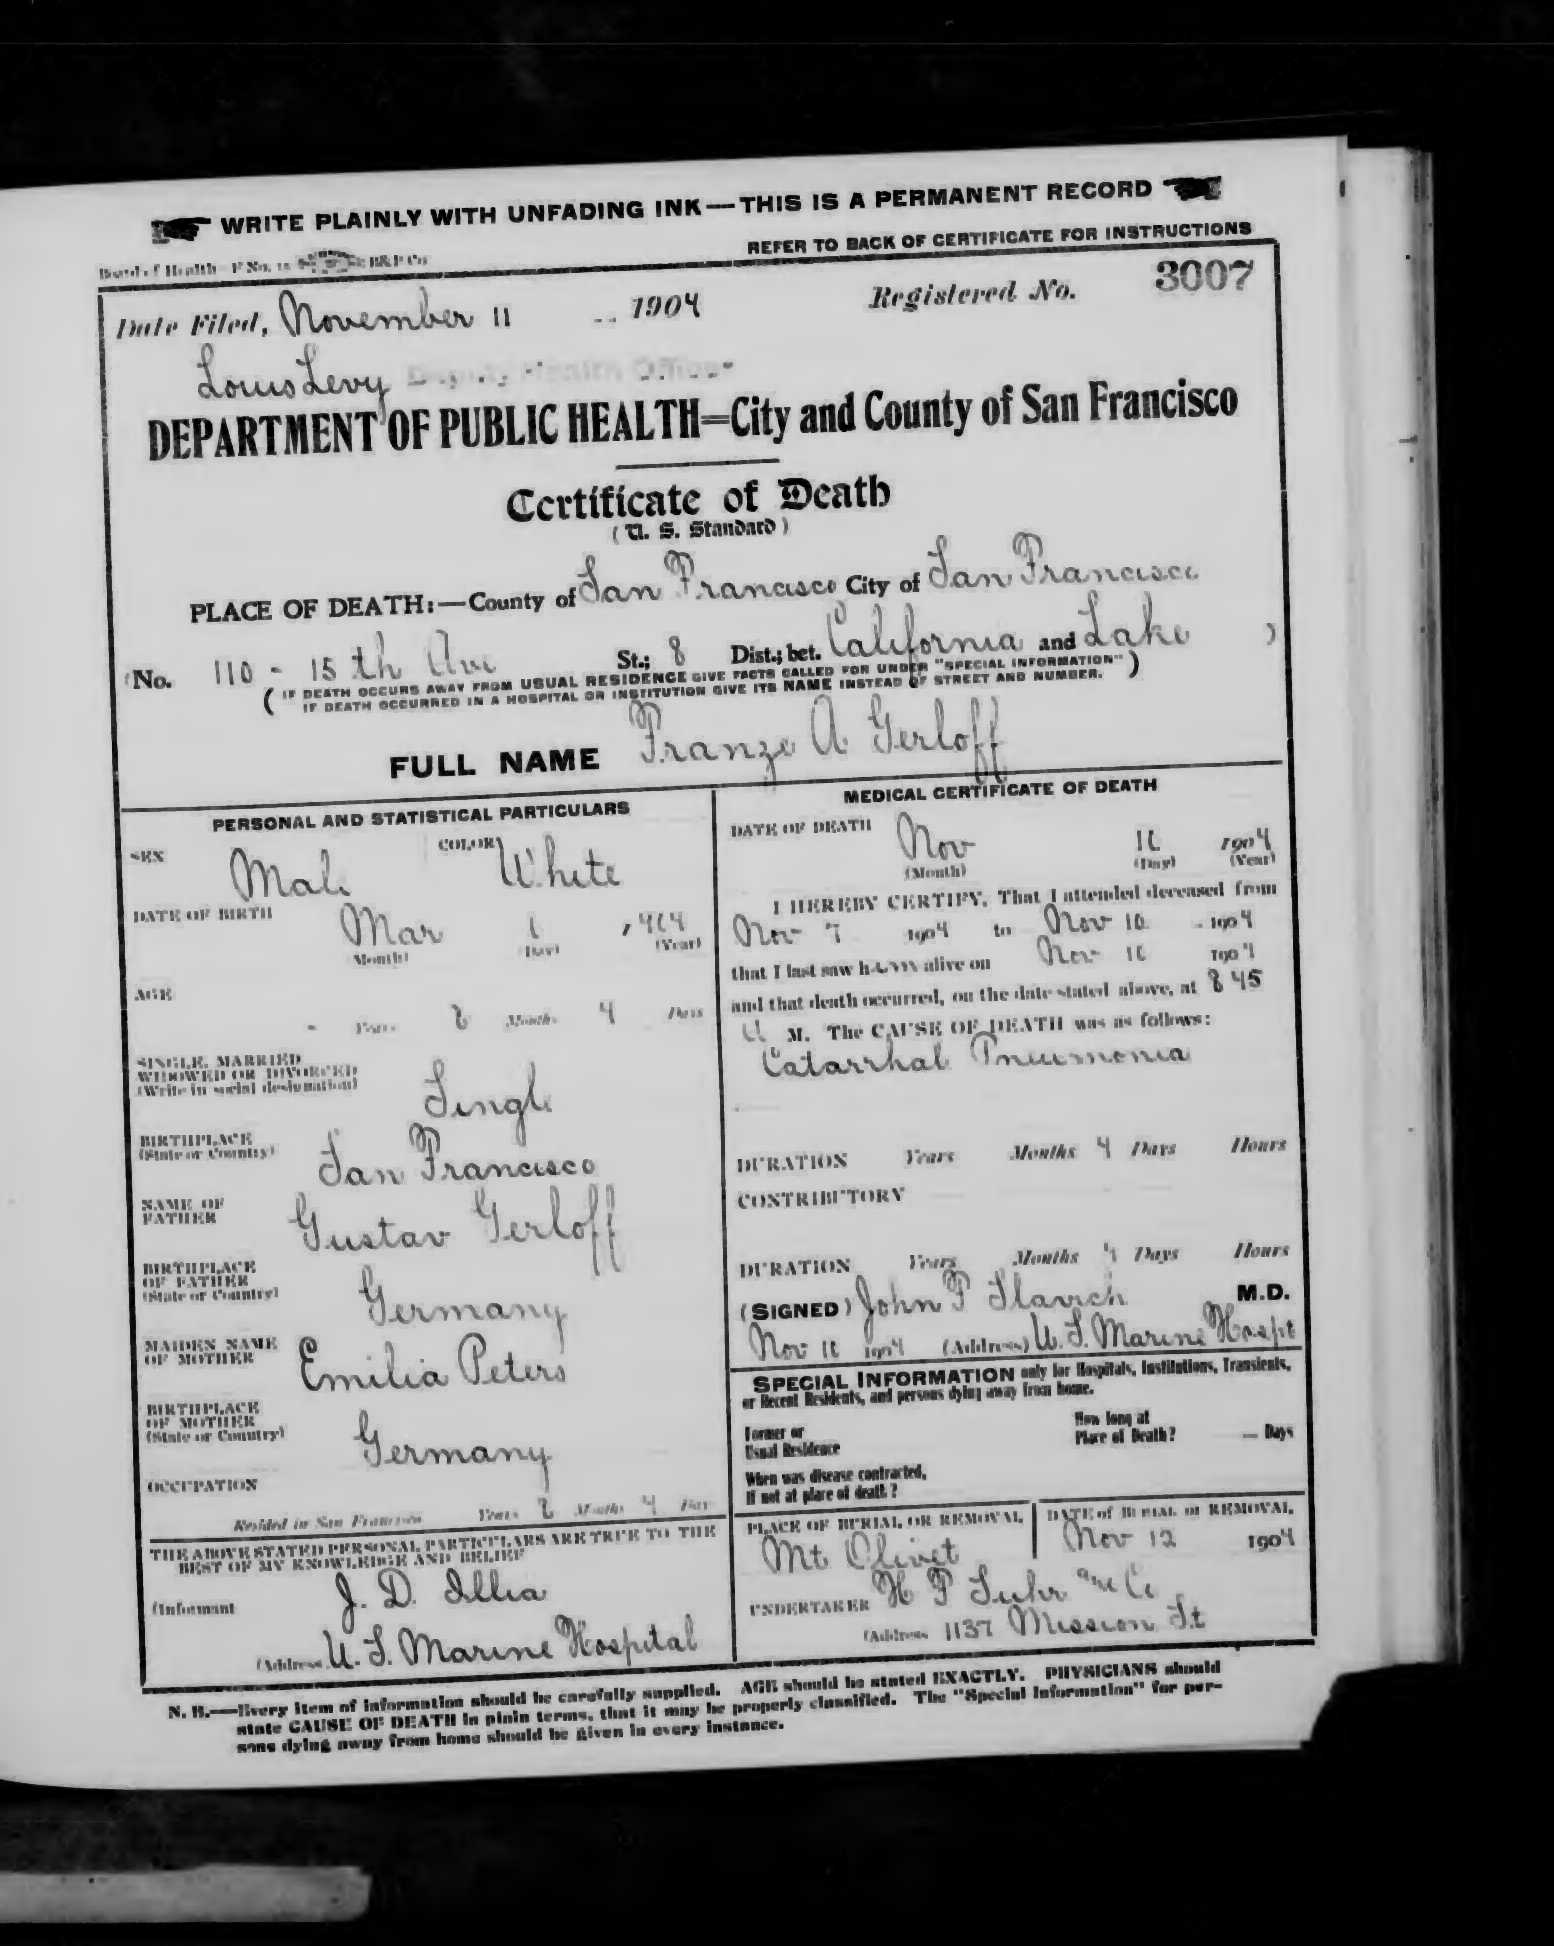 WRITE PLAINLY WITH UNFADING INK—THIS IS A PERMANENT RECORD
Board of Health—F No. B&P Co
REFER TO BACK OF CERTIFICATE FOR INSTRUCTIONS
Date Filed, November 11 1904 Registered No. 3007
Louis Levy Deputy Health Officer
DEPARTMENT OF PUBLIC HEALTH=City and County of San Francisco
Certificate of Death
(U. S. Standard)
PLACE OF DEATH:—County of San Francisco City of San Francisco
(No. 110 - 15th Ave St.; 8 Dist.; bet. California and Lake )
( IF DEATH OCCURS AWAY FROM USUAL RESIDENCE GIVE FACTS CALLED FOR UNDER "SPECIAL INFORMATION" )
IF DEATH OCCURRED IN A HOSPITAL OR INSTITUTION GIVE ITS NAME INSTEAD OF STREET AND NUMBER.
FULL NAME Franze A Gerloff
PERSONAL AND STATISTICAL PARTICULARS
SEX Male COLOR White
DATE OF BIRTH Mar (Month) (Day) (Year)
AGE - Years 8 Months 4 Days
SINGLE, MARRIED
WIDOWED OR DIVORCED
(Write in social designation) Single
BIRTHPLACE
(State or Country) San Francisco
NAME OF
FATHER Gustav Gerloff
BIRTHPLACE
OF FATHER
(State or Country) Germany
MAIDEN NAME
OF MOTHER Emilia Peters
BIRTHPLACE
OF MOTHER
(State or Country) Germany
OCCUPATION
Resided in San Francisco Years 8 Months 4 Days
THE ABOVE STATED PERSONAL PARTICULARS ARE TRUE TO THE
BEST OF MY KNOWLEDGE AND BELIEF
(Informant J. D. Illia
(Address U. S. Marine Hospital
MEDICAL CERTIFICATE OF DEATH
DATE OF DEATH Nov 10 1904
(Month) (Day) (Year)
I HEREBY CERTIFY, That I attended deceased from
Nov 7 1904 to Nov 10 1904
that I last saw him alive on Nov 10 1904
and that death occurred, on the date stated above, at 8 45
A M. The CAUSE OF DEATH was as follows:
Catarrhal Pneumonia
DURATION Years Months 4 Days Hours
CONTRIBUTORY
DURATION Years Months 4 Days Hours
(SIGNED) John P Slavich M.D.
Nov 10 1904 (Address) U. S. Marine Hospt
SPECIAL INFORMATION only for Hospitals, Institutions, Transients,
or Recent Residents, and persons dying away from home.
Former or
Usual Residence
How long at
Place of Death? — Days
When was disease contracted,
If not at place of death?
PLACE OF BURIAL OR REMOVAL
Mt Olivet
DATE of BURIAL or REMOVAL
Nov 12 1904
UNDERTAKER H P Suhr and Co
(Address 1137 Mission St
N. B.—Every item of information should be carefully supplied. AGE should be stated EXACTLY. PHYSICIANS should
state CAUSE OF DEATH in plain terms, that it may be properly classified. The "Special Information" for per-
sons dying away from home should be given in every instance.